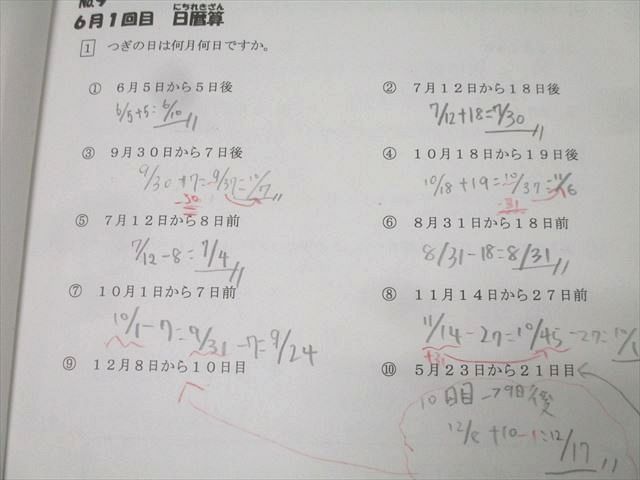 No.9
にちれきざん
6月1回目 日暦算
1 つぎの日は何月何日ですか。
① 6月5日から5日後
6/5+5=6/10
② 7月12日から18日後
7/12+18=7/30
③ 9月30日から7日後
9/30+7=9/37=10/7
-30
④ 10月18日から19日後
10/18+19=10/37=11/6
-31
⑤ 7月12日から8日前
7/12-8=7/4
⑥ 8月31日から18日前
8/31-18=8/31
⑦ 10月1日から7日前
10/1-7=9/31-7=9/24
⑧ 11月14日から27日前
11/14-27=10/45-27=10/1
⑨ 12月8日から10日目
⑩ 5月23日から21日目
10日目→9日後
12/8+10-1=12/17